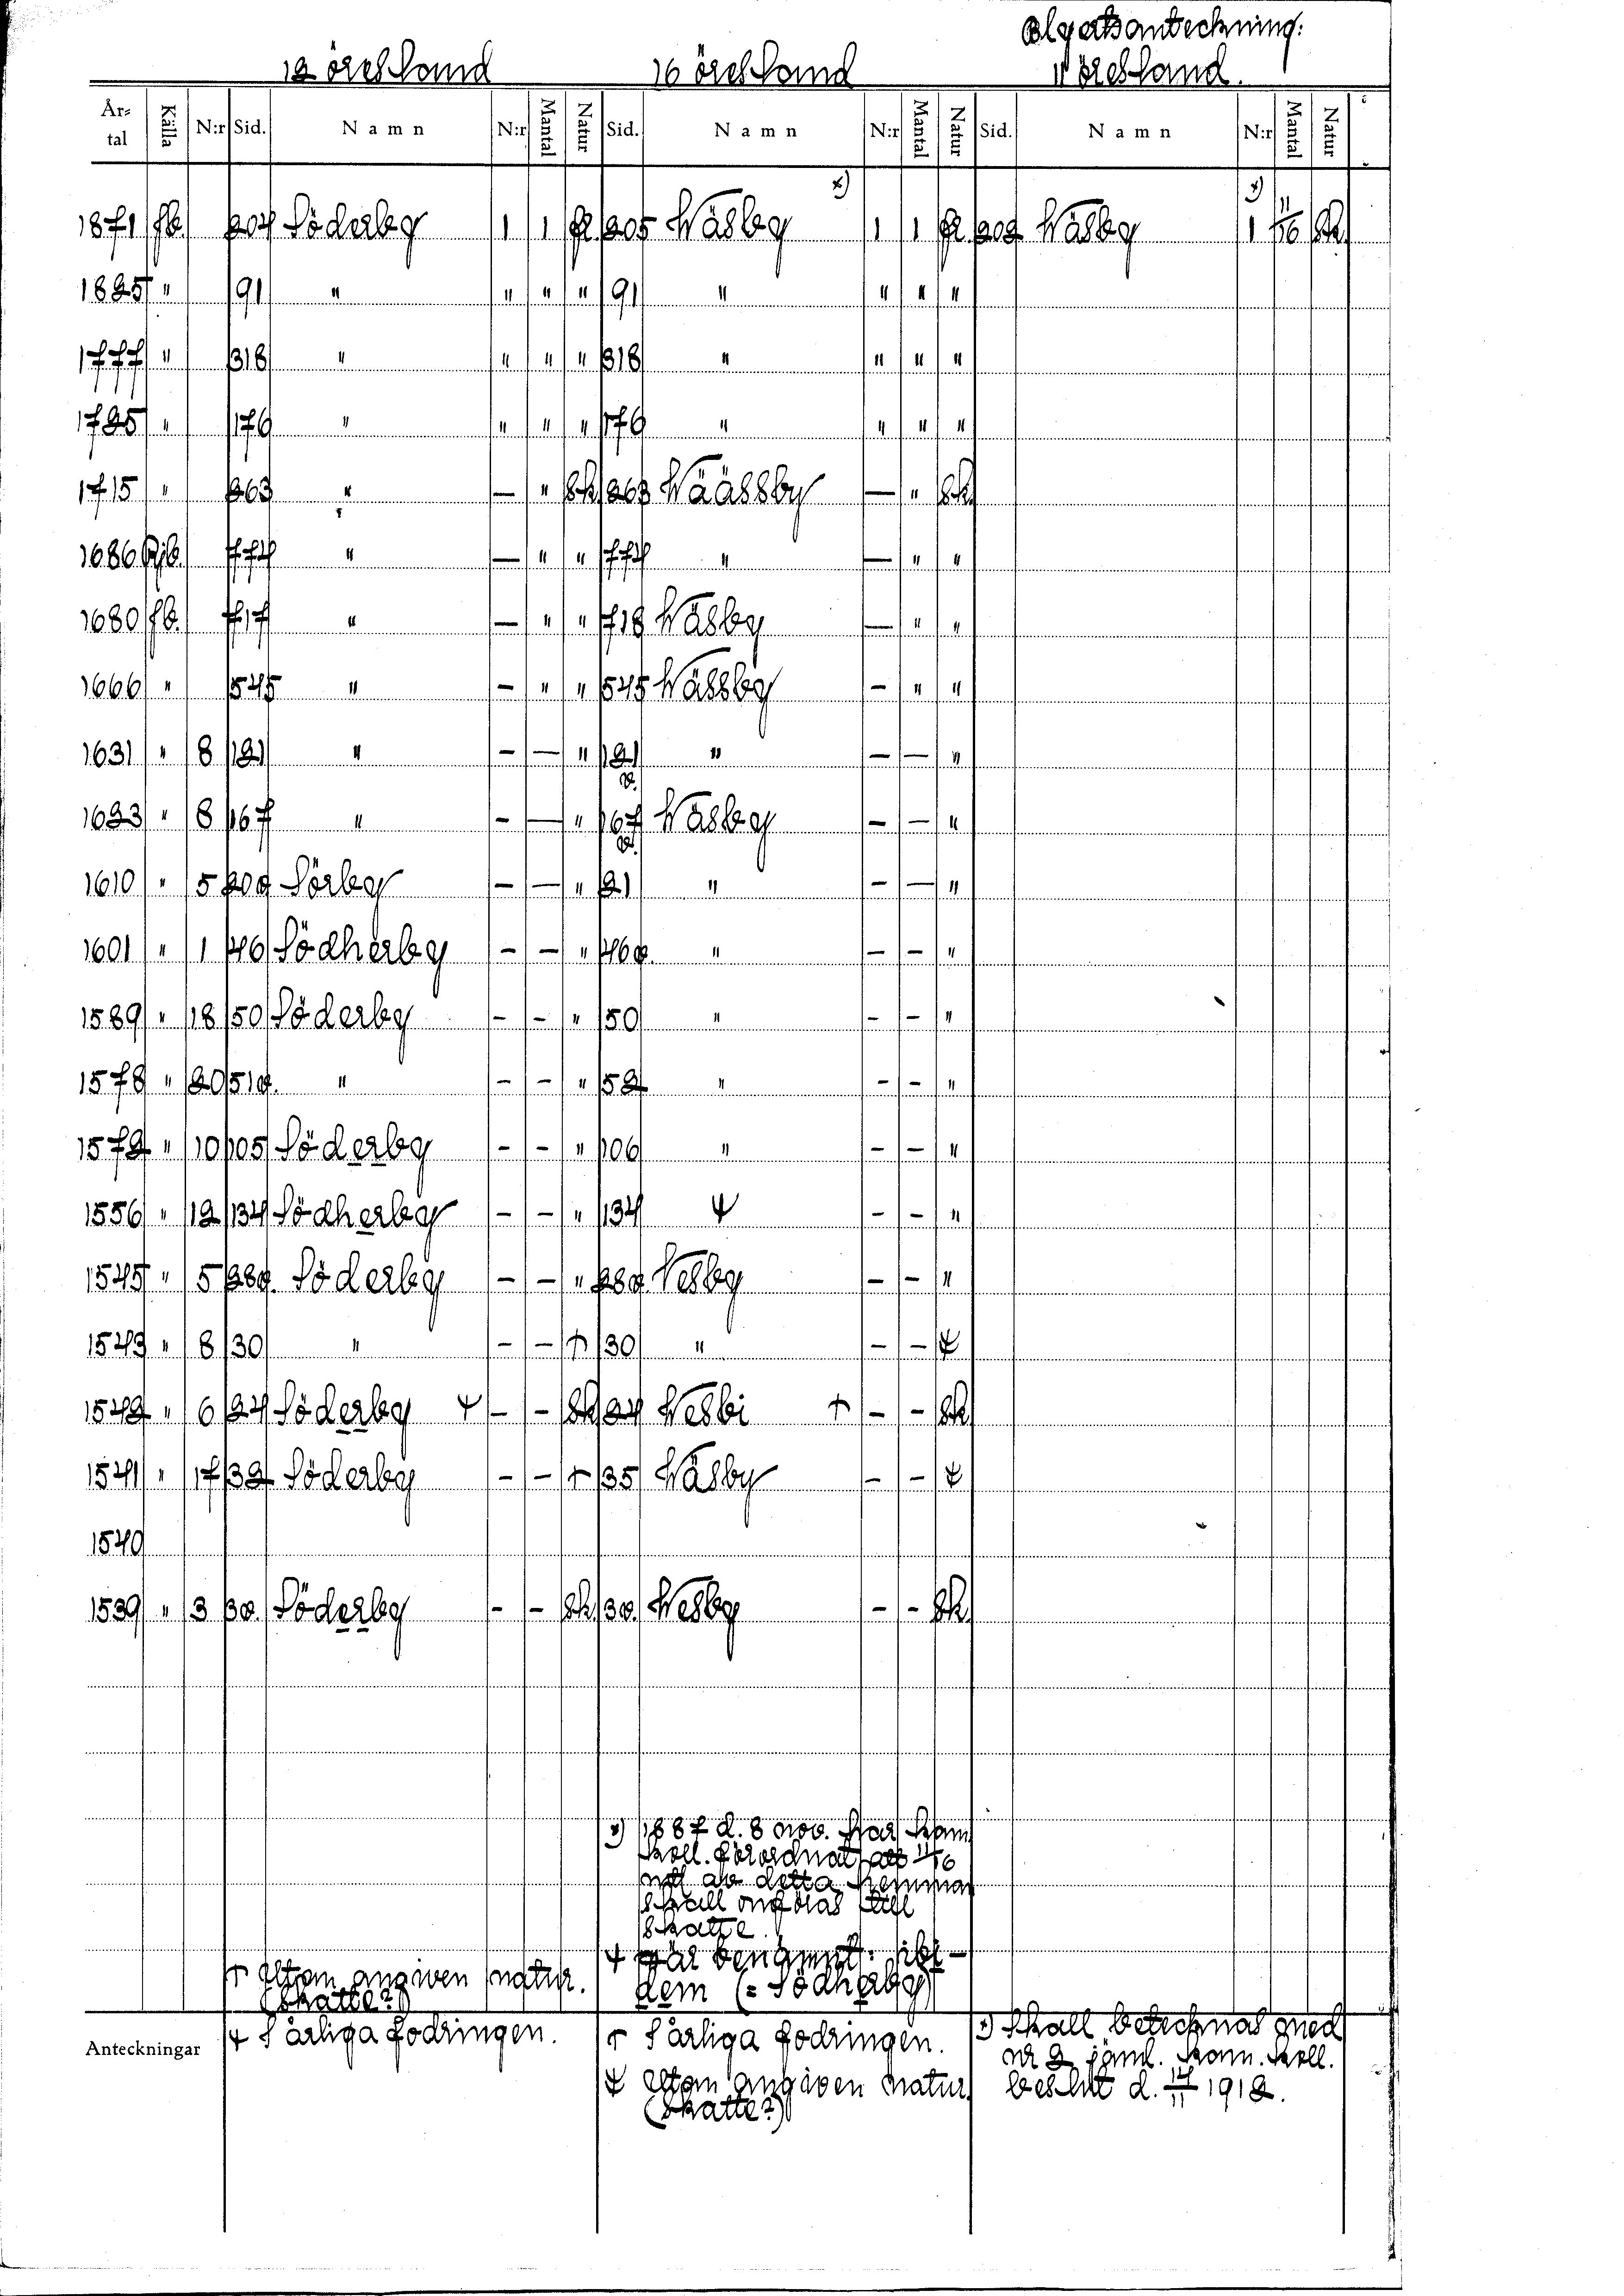 anteckning:
12 öresland 16 öresland 11 öresland.
År-tal Källa N:r Sid. Namn N:r Mantal Natur Sid. Namn N:r Mantal Natur Sid. Namn N:r Mantal Natur
1871 Jb. 204 Söderby 1 1 fr. 205 Wäsby x) 1 1 fr. 202 Wäsby x) 1 11/16 Sk.
1825 " 91 " " " " 91 " " " "
1777 " 318 " " " " 318 " " " "
1725 " 176 " " " " 176 " " " "
1715 " 263 " — " Sk. 263 Wäässby — " Sk.
1686 Rjb. 774 " — " " 774 " — " "
1680 Jb. 717 " — " " 718 Wäsby — " "
1666 " 545 " — " " 545 Wässby — " "
1631 " 8 121 " — — " 121 v. " — — "
1623 " 8 167 " — — " 167 v. Wäsby — — "
1610 " 5 20v Sörby — — " 21 " — — "
1601 " 1 46 Södherby — — " 46v. " — — "
1589 " 18 50 Söderby — — " 50 " — — "
1578 " 20 51v. " — — " 52 " — — "
1572 " 10 105 Söderby — — " 106 " — — "
1556 " 12 134 Södherby — — " 134 ⍦ — — "
1545 " 5 28v. Söderby — — " 28v. Vesby — — "
1543 " 8 30 " — — † 30 " — — ‡
1542 " 6 24 Söderby ⍦ — — Sk. 24 Wesbi † — — Sk.
1541 " 17 32 Söderby — — † 35 Wäsby — — ‡
1540
1539 " 3 3v. Söderby - - Sk. 3v. Wesby - - Sk.
x) 1887 d. 8 nov. har Kam.
Koll. förordnat att 11/16
mtl av detta hemman
skall omföras till
skatte.
⍦ här benämnt: ibi-
dem (= Södherby)
† Utan angiven natur.
(Skatte?)
Anteckningar
⍦ Särliga fodringen.
† Särliga fodringen.
‡ Utan angiven natur.
(Skatte?)
x) Skall betecknas med
nr 2 jäml. Kam. Koll.
beslut d. 14/11 1912.